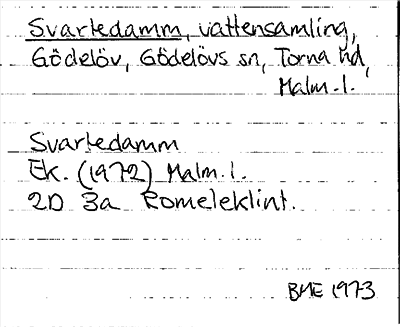 Svartedamm, vattensamling,
Gödelöv, Gödelövs sn, Torna hd,
Malm.l.
Svartedamm
Ek. (1972) Malm.l.
2D 3a Romeleklint.
BME 1973